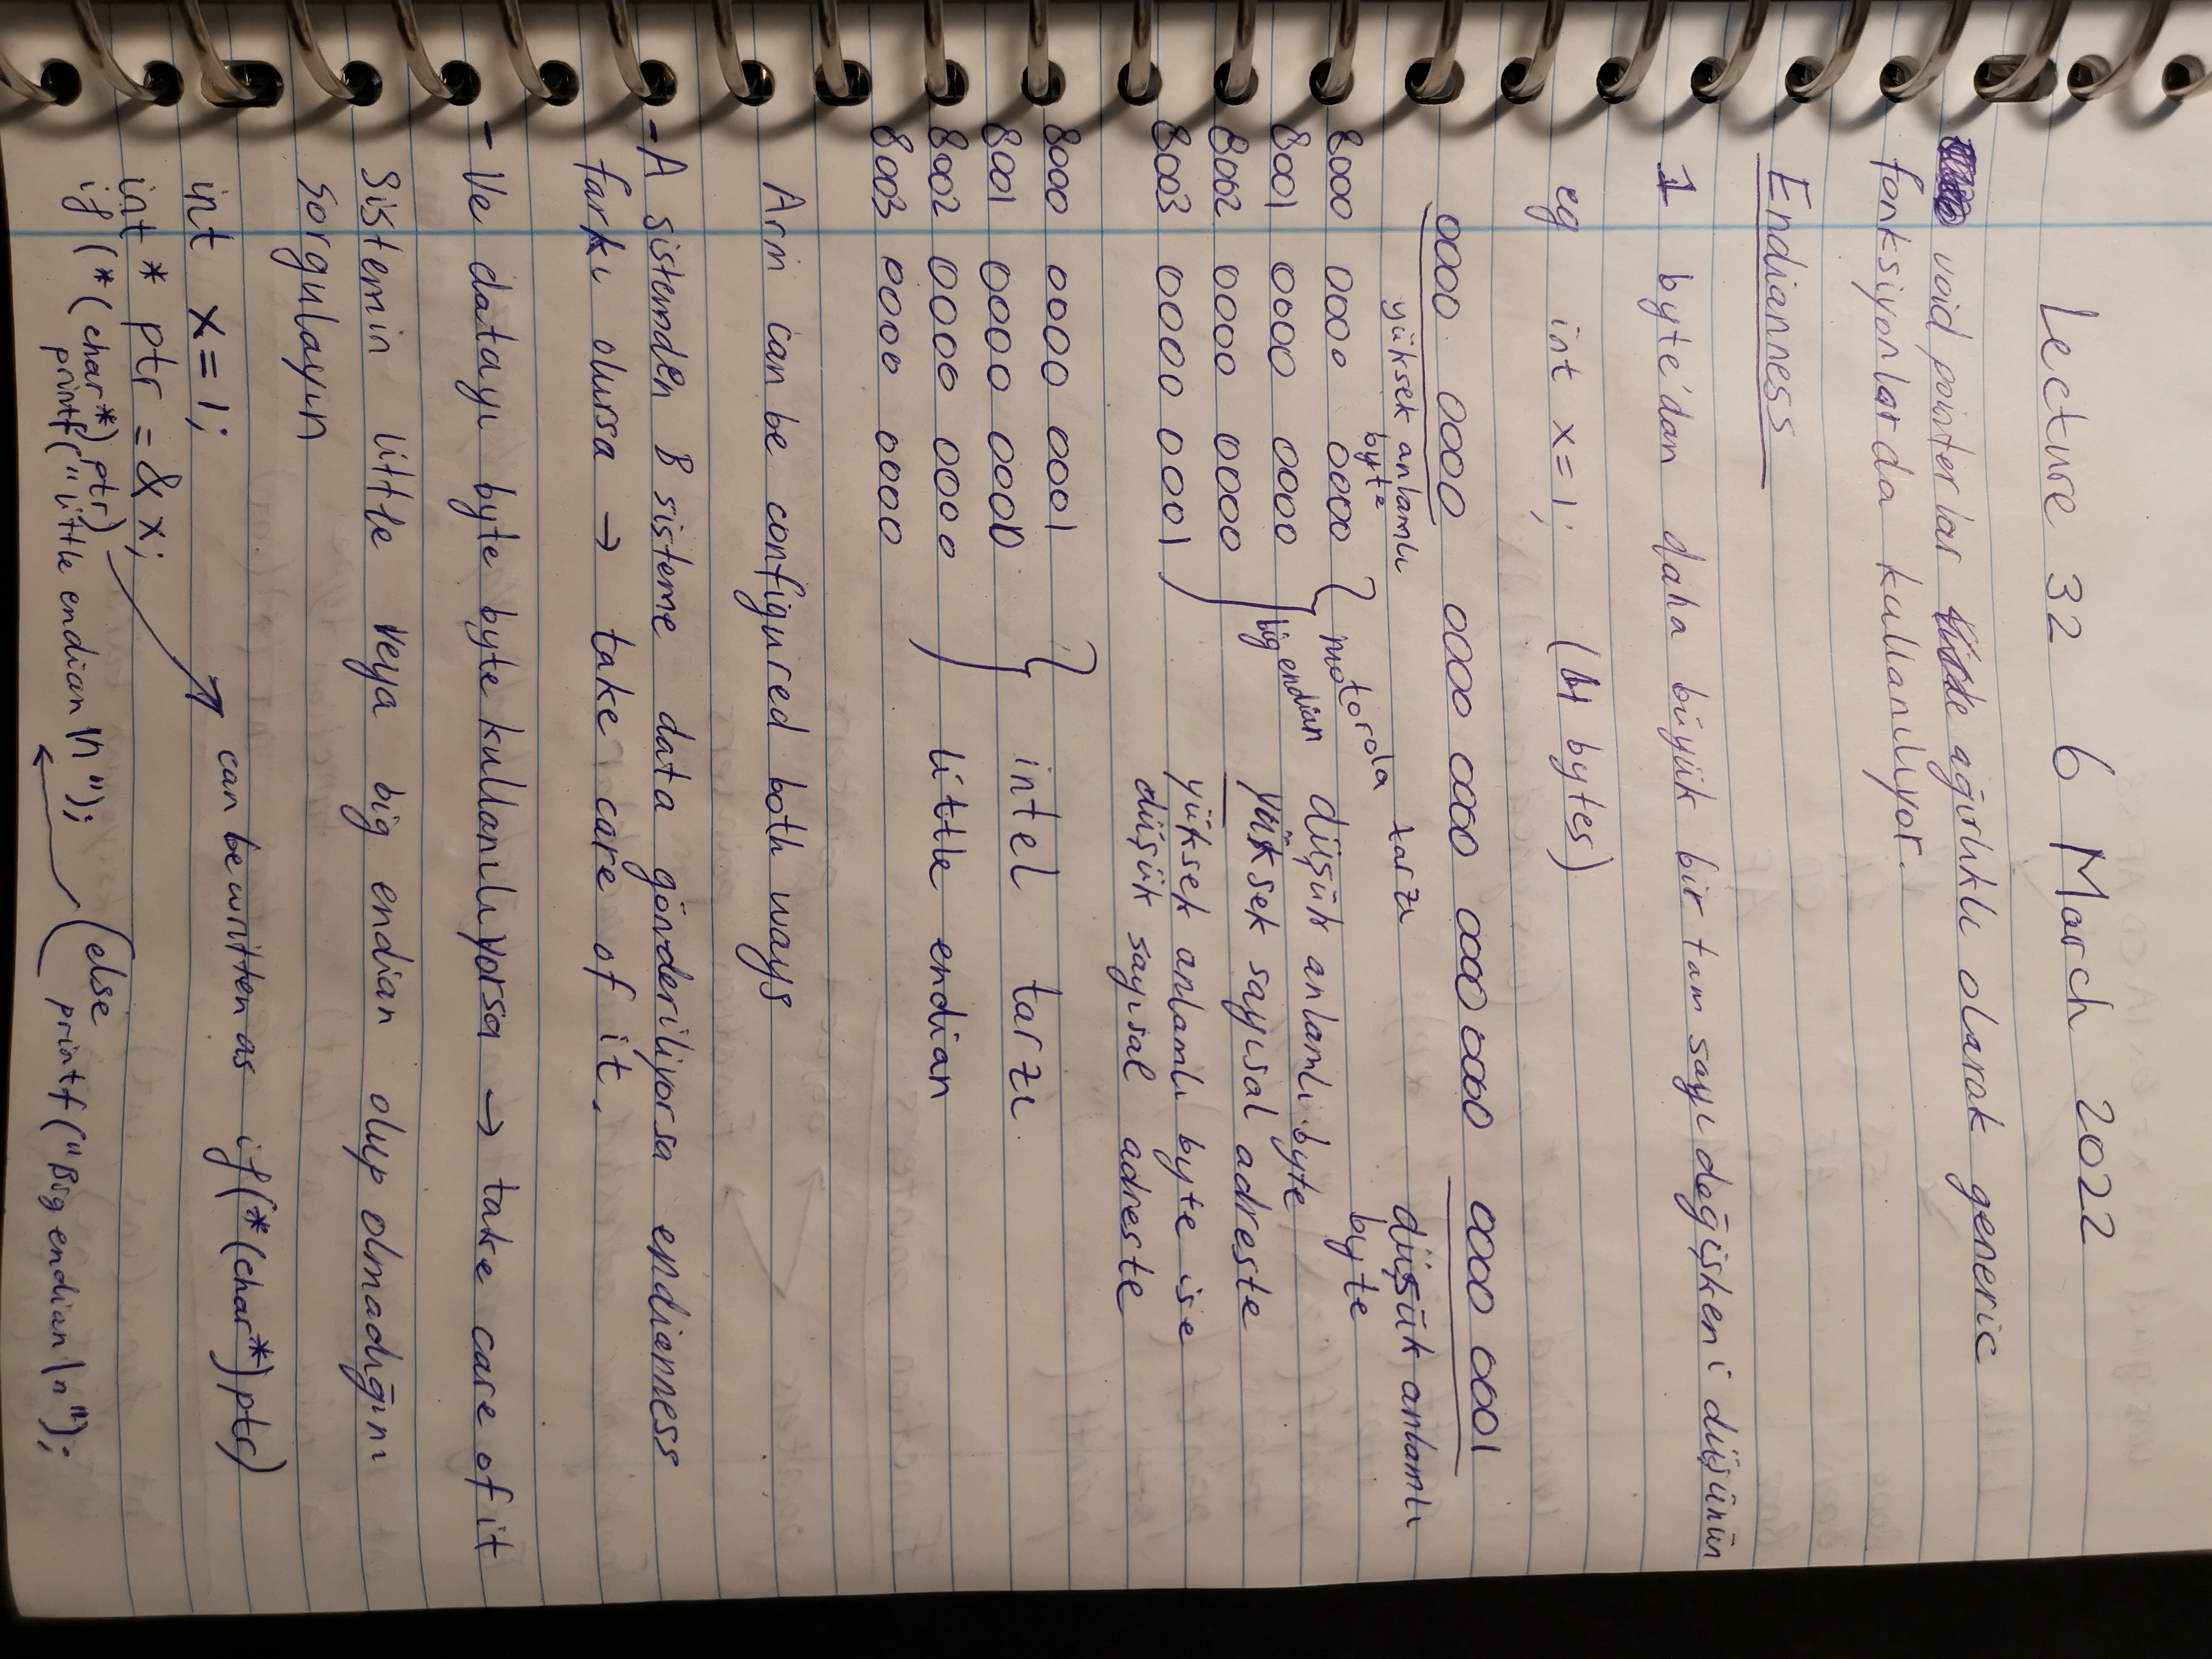 Lecture 32 6 March 2022
void pointerlar ağırlıklı olarak generic
fonksiyonlarda kullanılıyor.
Endianness
1 byte'dan daha büyük bir tam sayı değişkeni düşünün
eg int x=1; (4 bytes)
0000 0000 0000 0000 0000 0000 0000 0001
yüksek anlamlı byte
düşük anlamlı byte
8000 0000 0000
8001 0000 0000
8002 0000 0000
8003 0000 0001
motorola tarzı
big endian
düşük anlamlı byte
yüksek sayısal adreste
yüksek anlamlı byte ise
düşük sayısal adreste
8000 0000 0001
8001 0000 0000
8002 0000 0000
8003 0000 0000
intel tarzı
little endian
Arm can be configured both ways
-A sistemden B sisteme data gönderiliyorsa endianness
farkı olursa → take care of it.
- Ve datayı byte byte kullanılıyorsa → take care of it
Sistemin little veya big endian olup olmadığını
sorgulayın
int x=1;
can be written as if(*(char*)ptr)
int * ptr = &x;
if (*(char*)ptr)
printf("little endian \n");
else
printf("Big endian \n");